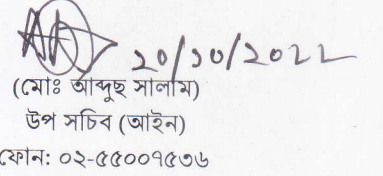 ২০/১০/২০২২
(মোঃ আব্দুছ সালাম)
উপ সচিব (আইন)
ফোন: ০২-৫৫০০৭৫৩৬